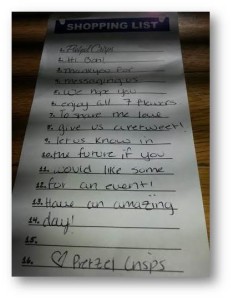 SHOPPING LIST
1. Pretzel Crisps
2. Hi Don!
3. Thank you for
4. messaging us
5. We hope you
6. enjoy all 7 flavors
7. To share the love
8. give us a retweet!
9. let us know in
10. the future if you
11. would like some
12. for an event!
13. Have an amazing
14. day!
15.
16. ♡ Pretzel Crisps